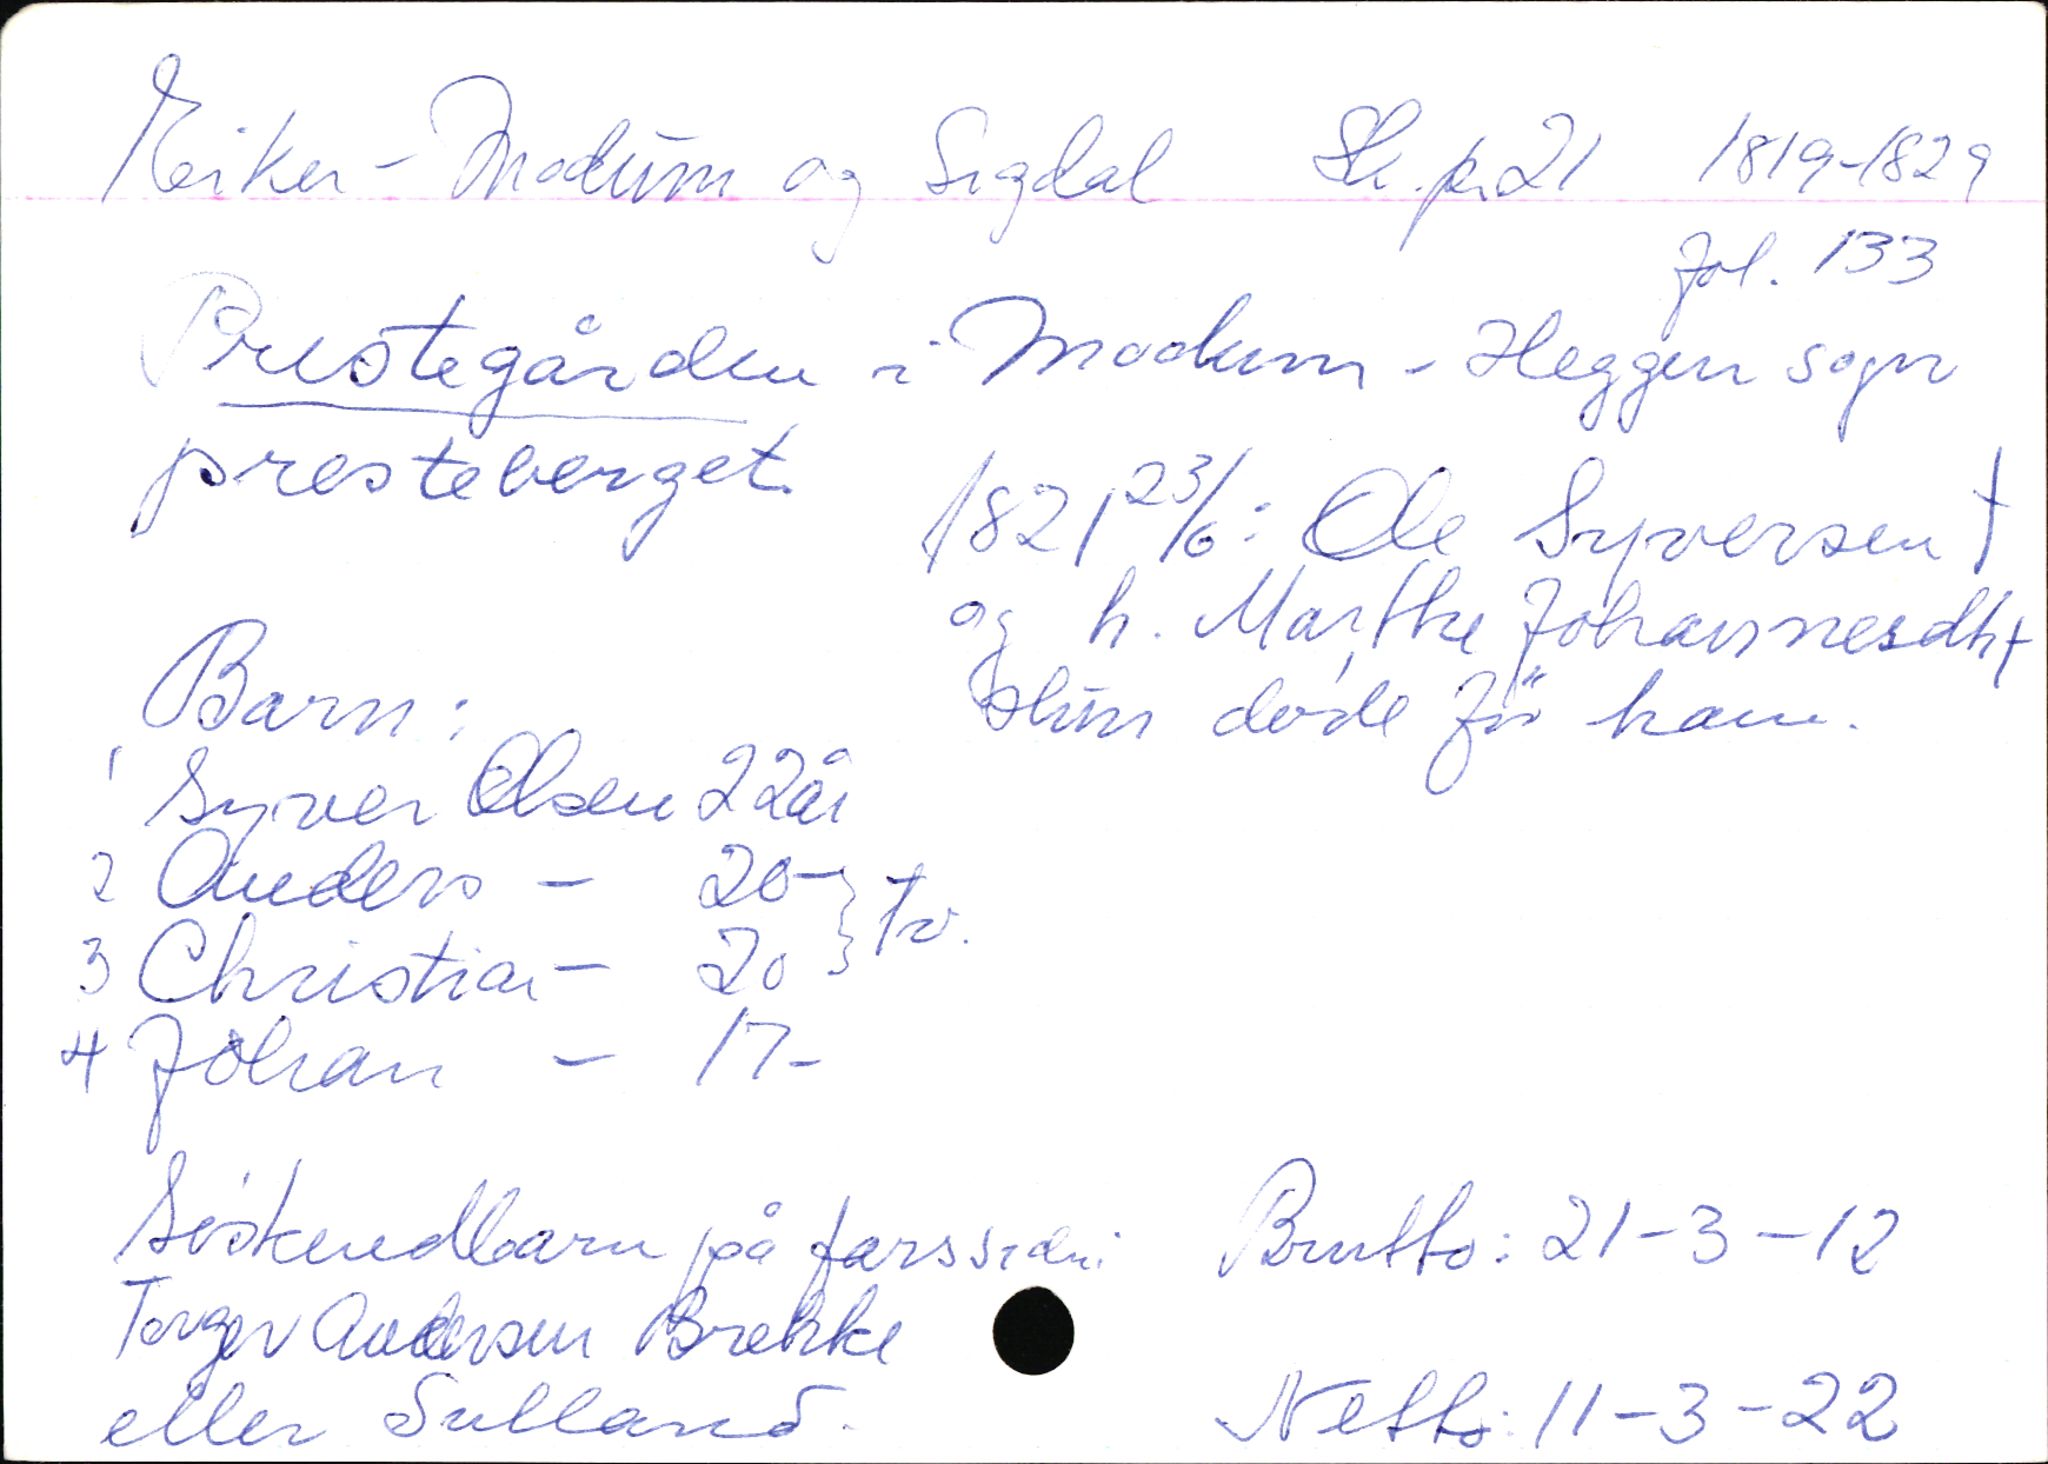 Eiker - Modum og Sigdal Sk.pr. 21 1819-1829
fol. 133
Prestegården i Modum - Heggen sogn
presteberget.
1821 23/6: Ole Syversen †
og h. Marthe Johannesdtr †
Hun døde før ham.
Barn:
1 Syver Olsen 22 år
2 Anders - 20 - } tv.
3 Christian - 20
4 Johan - 17 -
Søskendbarn på farssiden:
Torger Andersen Brekke
eller Sulland.
Brutto: 21-3-12
Netto: 11-3-22